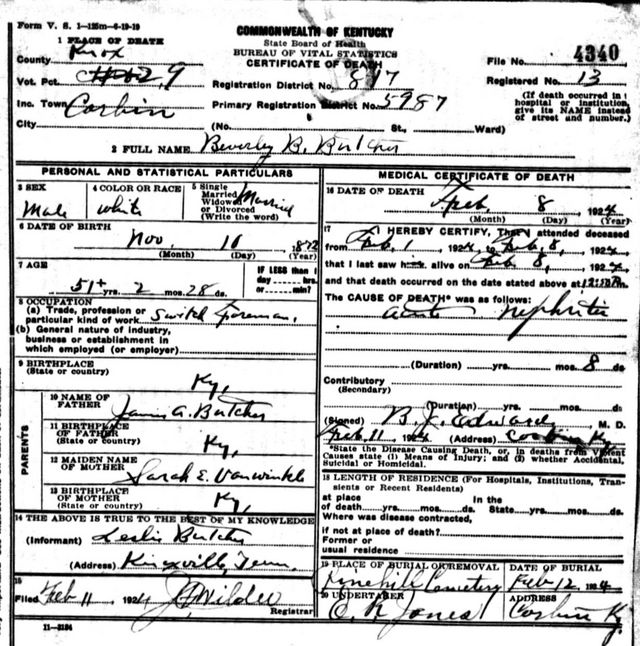 Form V. S. 1-125m-6-19-19
COMMONWEALTH OF KENTUCKY
State Board of Health
BUREAU OF VITAL STATISTICS
CERTIFICATE OF DEATH
1 PLACE OF DEATH
County Knox
File No. 4340
Vot. Pct. 9
Registration District No. 817
Registered No. 13
Inc. Town Corbin
Primary Registration District No. 5987
(If death occurred in a hospital or institution, give its NAME instead of street and number.)
City (No. St., Ward)
2 FULL NAME Beverly B. Butcher
PERSONAL AND STATISTICAL PARTICULARS
3 SEX
Male
4 COLOR OR RACE
White
5 Single
Married
Widowed
or Divorced
(Write the word)
Married
6 DATE OF BIRTH
Nov. 10 1872
(Month) (Day) (Year)
7 AGE
51 yrs. 2 mos. 28 ds.
IF LESS than 1
day hrs.
or min?
8 OCCUPATION
(a) Trade, profession or
particular kind of work Switch foreman.
(b) General nature of industry,
business or establishment in
which employed (or employer)
9 BIRTHPLACE
(State or country)
Ky.
PARENTS
10 NAME OF
FATHER
James A. Butcher
11 BIRTHPLACE
OF FATHER
(State or country)
Ky.
12 MAIDEN NAME
OF MOTHER
Sarah E. Vanwinkle
13 BIRTHPLACE
OF MOTHER
(State or country)
Ky.
14 THE ABOVE IS TRUE TO THE BEST OF MY KNOWLEDGE
(Informant) Leslie Butcher
(Address) Tenn.
15
Filed Feb 11, 1924 Wilder
Registrar
11-3184
MEDICAL CERTIFICATE OF DEATH
16 DATE OF DEATH
Feb. 8, 1924
(Month) (Day) (Year)
17 I HEREBY CERTIFY, That I attended deceased
from Feb. 1, 1924, to Feb. 8, 1924
that I last saw him alive on Feb. 8, 1924
and that death occurred on the date stated above at
The CAUSE OF DEATH* was as follows:
acute nephritis
(Duration) yrs. mos. 8 ds.
Contributory
(Secondary)
(Duration) yrs. mos. ds.
(Signed) B. J. Edwards, M. D.
Feb. 11, 1924 (Address) Corbin Ky.
*State the Disease Causing Death, or, in deaths from Violent
Causes state (1) Means of Injury; and (2) whether Accidental,
Suicidal or Homicidal.
18 LENGTH OF RESIDENCE (For Hospitals, Institutions, Tran-
sients or Recent Residents)
at place In the
of death yrs. mos. ds. State yrs. mos. ds.
Where was disease contracted,
if not at place of death?
Former or
usual residence
19 PLACE OF BURIAL OR REMOVAL
Pinehill Cemetery
DATE OF BURIAL
Feb 12 1924
20 UNDERTAKER
C. R. Jones
ADDRESS
Corbin Ky.